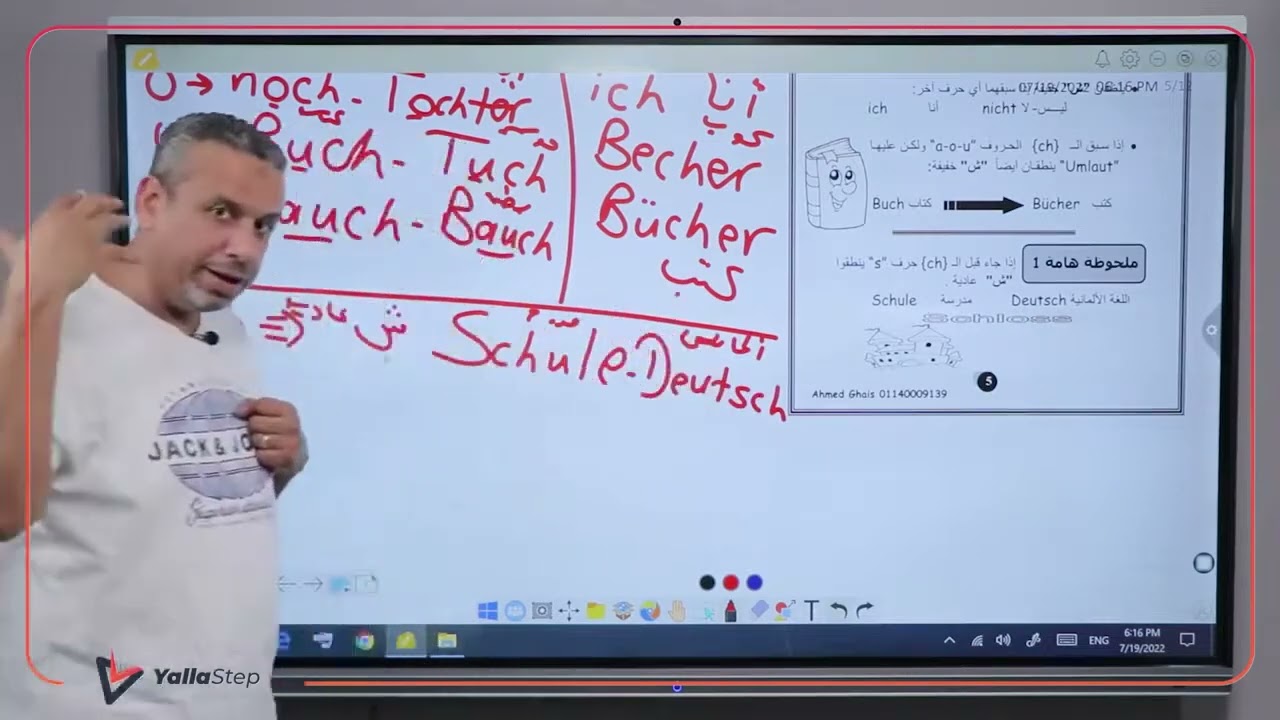 O → noch - Tochter
Buch - Tuch
auch - Bauch
ich أنا
Becher كوب
Bücher
كتب
ش عادية
Schule - Deutsch
07/19/2022 06:16 PM 5/12
سبقهما أي حرف آخر:
ich أنا nicht ليـس- لا
• إذا سبق الـ {ch} الحروف "a-o-u" ولكن عليها
"Umlaut" ينطقان ايضاً "ش" خفيفة:
Buch كتاب Bücher كتب
ملحوظة هامة 1
إذا جاء قبل الـ {ch} حرف "s" ينطقوا
"ش" عادية .
Schule مدرسة Deutsch اللغة الألمانية
Schloss
5
Ahmed Ghais 01140009139
JACK & JO
T
ENG
6:16 PM
7/19/2022
YallaStep